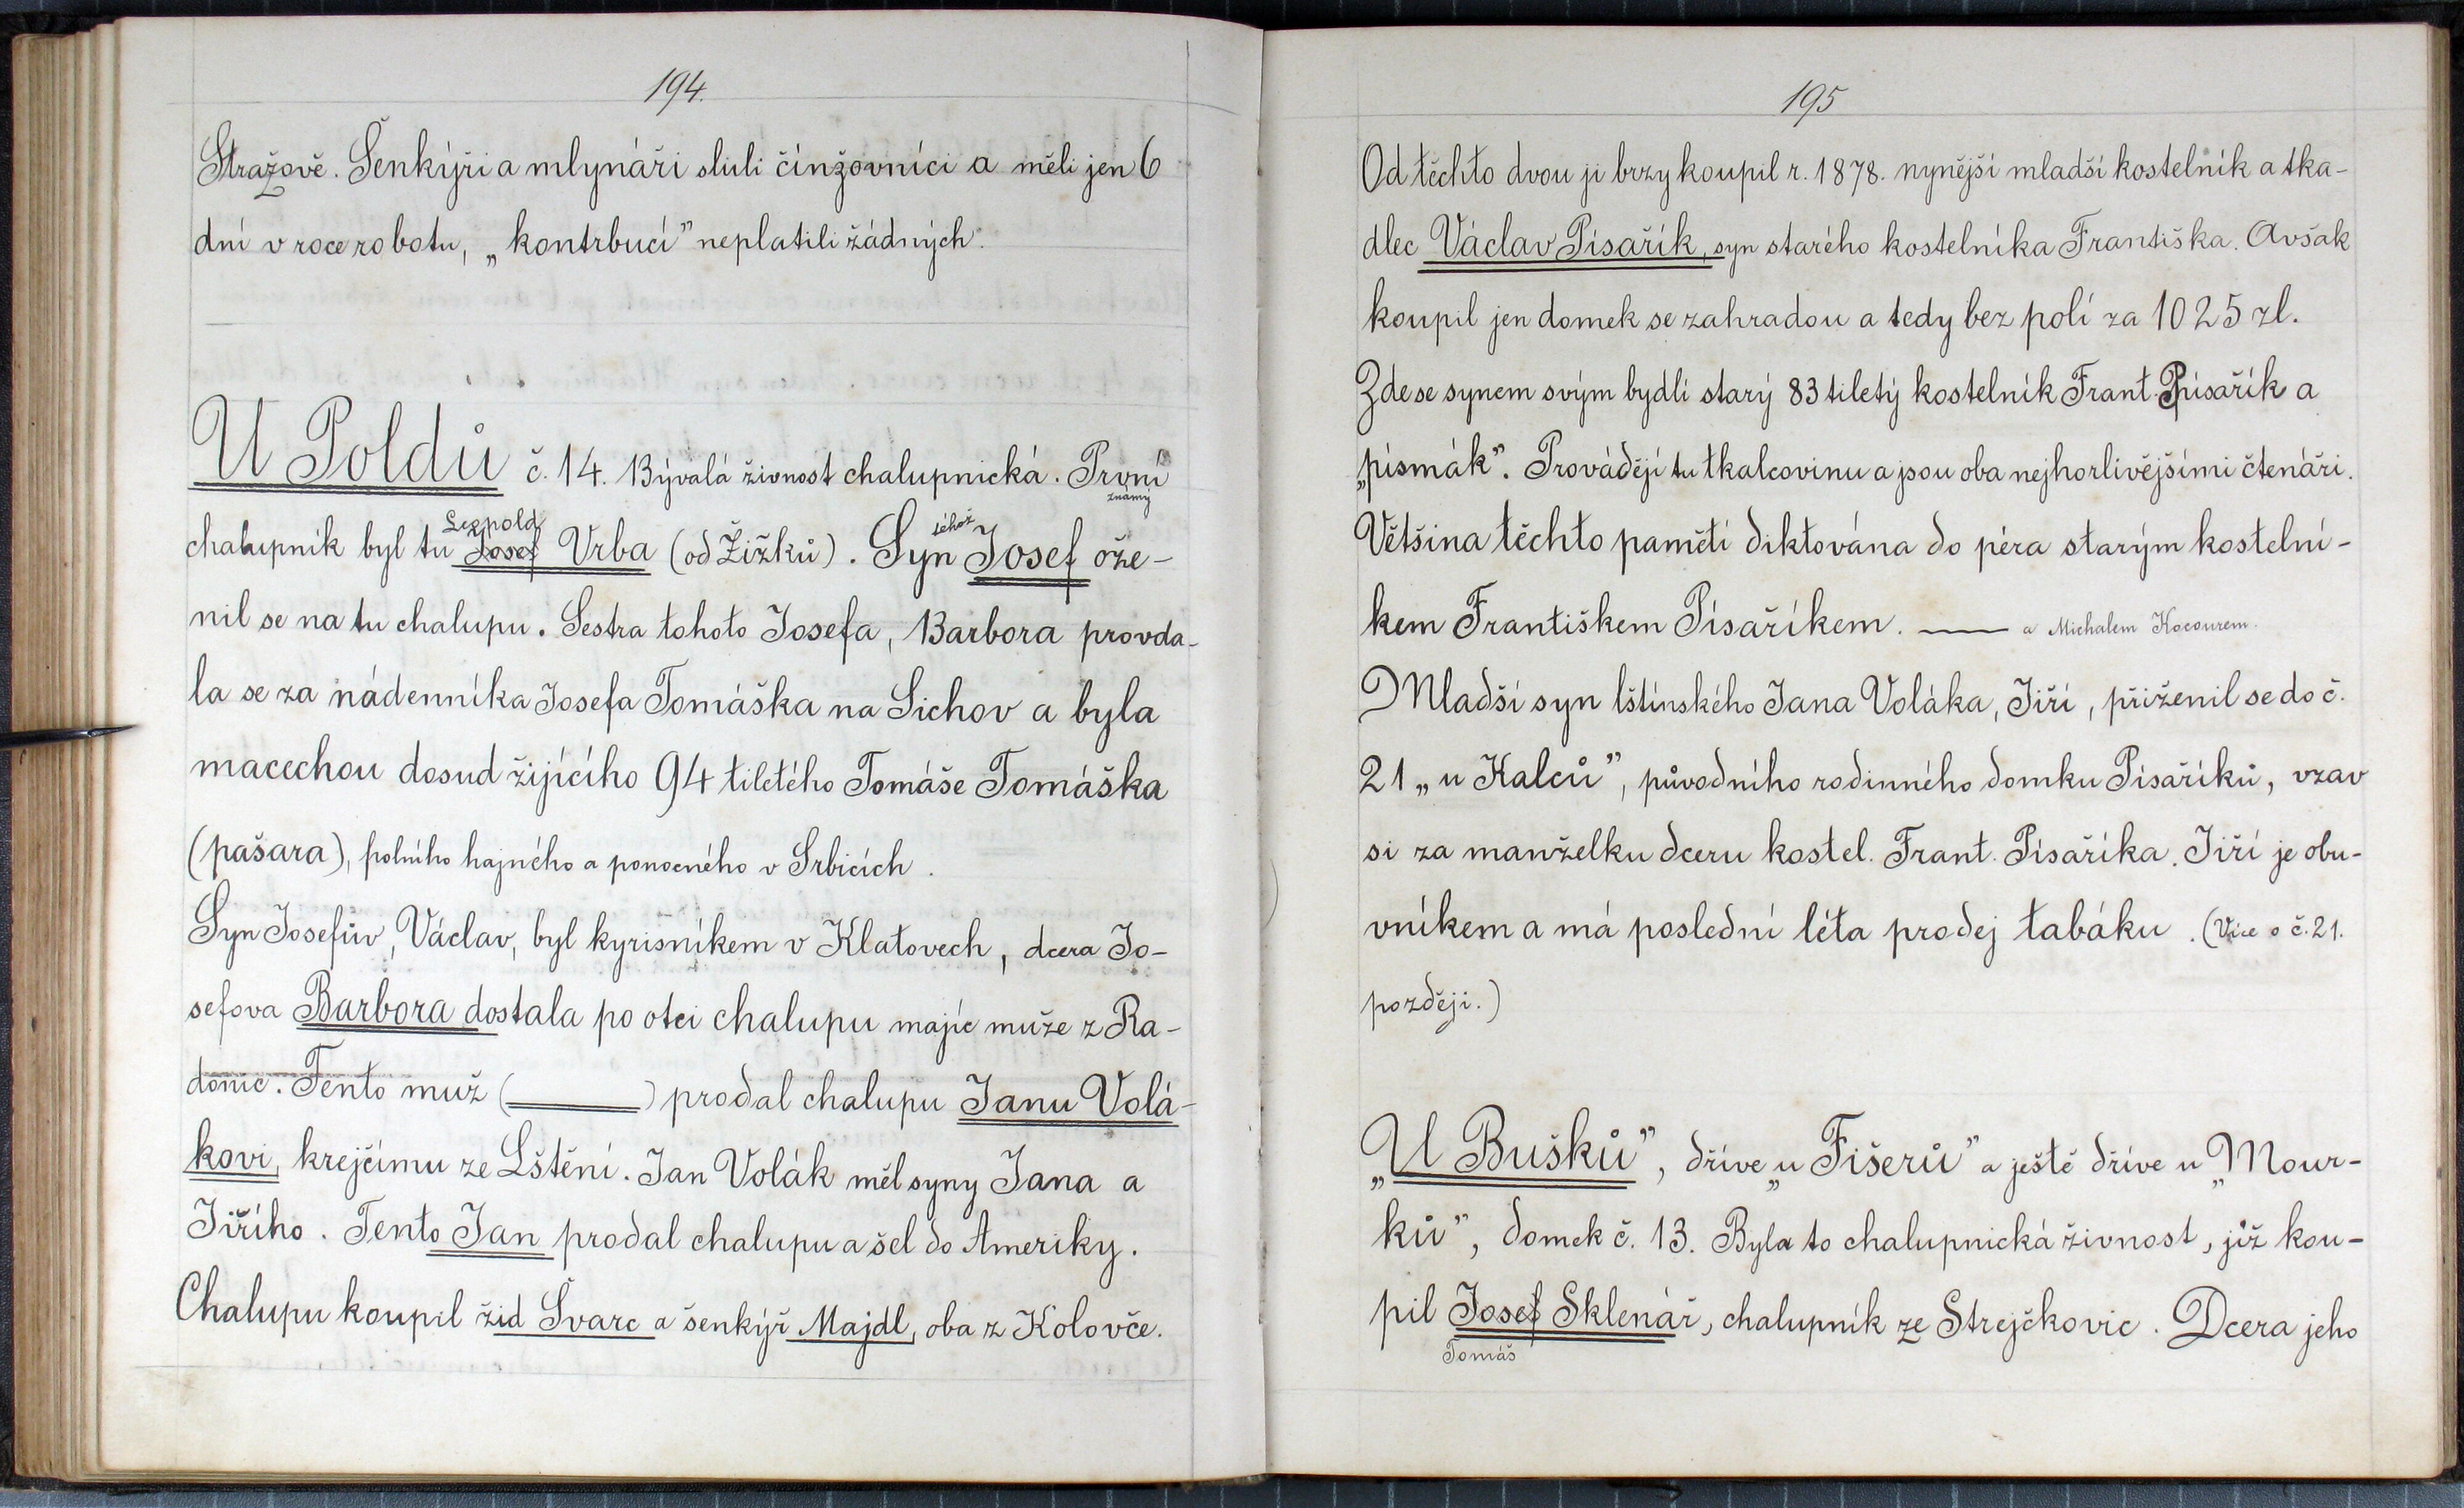 194.
Stražově. Šenkýři a mlynáři sluli činžovníci a měli jen 6
dní v roce robotu, „kontrbucí” neplatili žádných.
U Poldů č. 14. Bývalá živnost chalupnická. První
známý
Leopold
téhož
chalupník byl tu Josef Vrba (od Žižků). Syn Josef ože-
nil se na tu chalupu. Sestra tohoto Josefa, Barbora provda-
la se za nádenníka Josefa Tomáška na Sichov a byla
macechou dosud žijícího 94 tiletého Tomáše Tomáška
(pašara), polního hajného a ponocného v Srbicích.
Syn Josefův, Václav, byl kyrisníkem v Klatovech, dcera Jo-
sefova Barbora dostala po otci chalupu majíc muže z Ra-
donic. Tento muž ( ) prodal chalupu Janu Volá-
kovi, krejčímu ze Lštění. Jan Volák měl syny Jana a
Jiřího. Tento Jan prodal chalupu a šel do Ameriky.
Chalupu koupil žid Švarc a šenkýř Majdl, oba z Kolovče.
195
Od těchto dvou ji brzy koupil r. 1878. nynější mladší kostelník a tka-
dlec Václav Písařík, syn starého kostelníka Františka. Avšak
koupil jen domek se zahradou a tedy bez polí za 1025 zl.
Zde se synem svým bydlí starý 83 tiletý kostelník Frant. Písařík a
„písmák”. Provádějí tu tkalcovinu a jsou oba nejhorlivějšími čtenáři.
Většina těchto pamětí diktována do péra starým kostelní-
kem Františkem Písaříkem. — a Michalem Kocourem.
Mladší syn lštínského Jana Voláka, Jiří, přiženil se do č.
21 „u Kalců”, původního rodinného domku Písaříků, vzav
si za manželku dceru kostel. Frant. Písaříka. Jiří je obu-
vníkem a má poslední léta prodej tabáku. (Více o č. 21.
později.)
„U Bušků”, dříve „u Fišerů” a ještě dříve u „Mour-
ků”, domek č. 13. Byla to chalupnická živnost, již kou-
pil Josef Sklenář, chalupník ze Strejčkovic. Dcera jeho
Tomáš